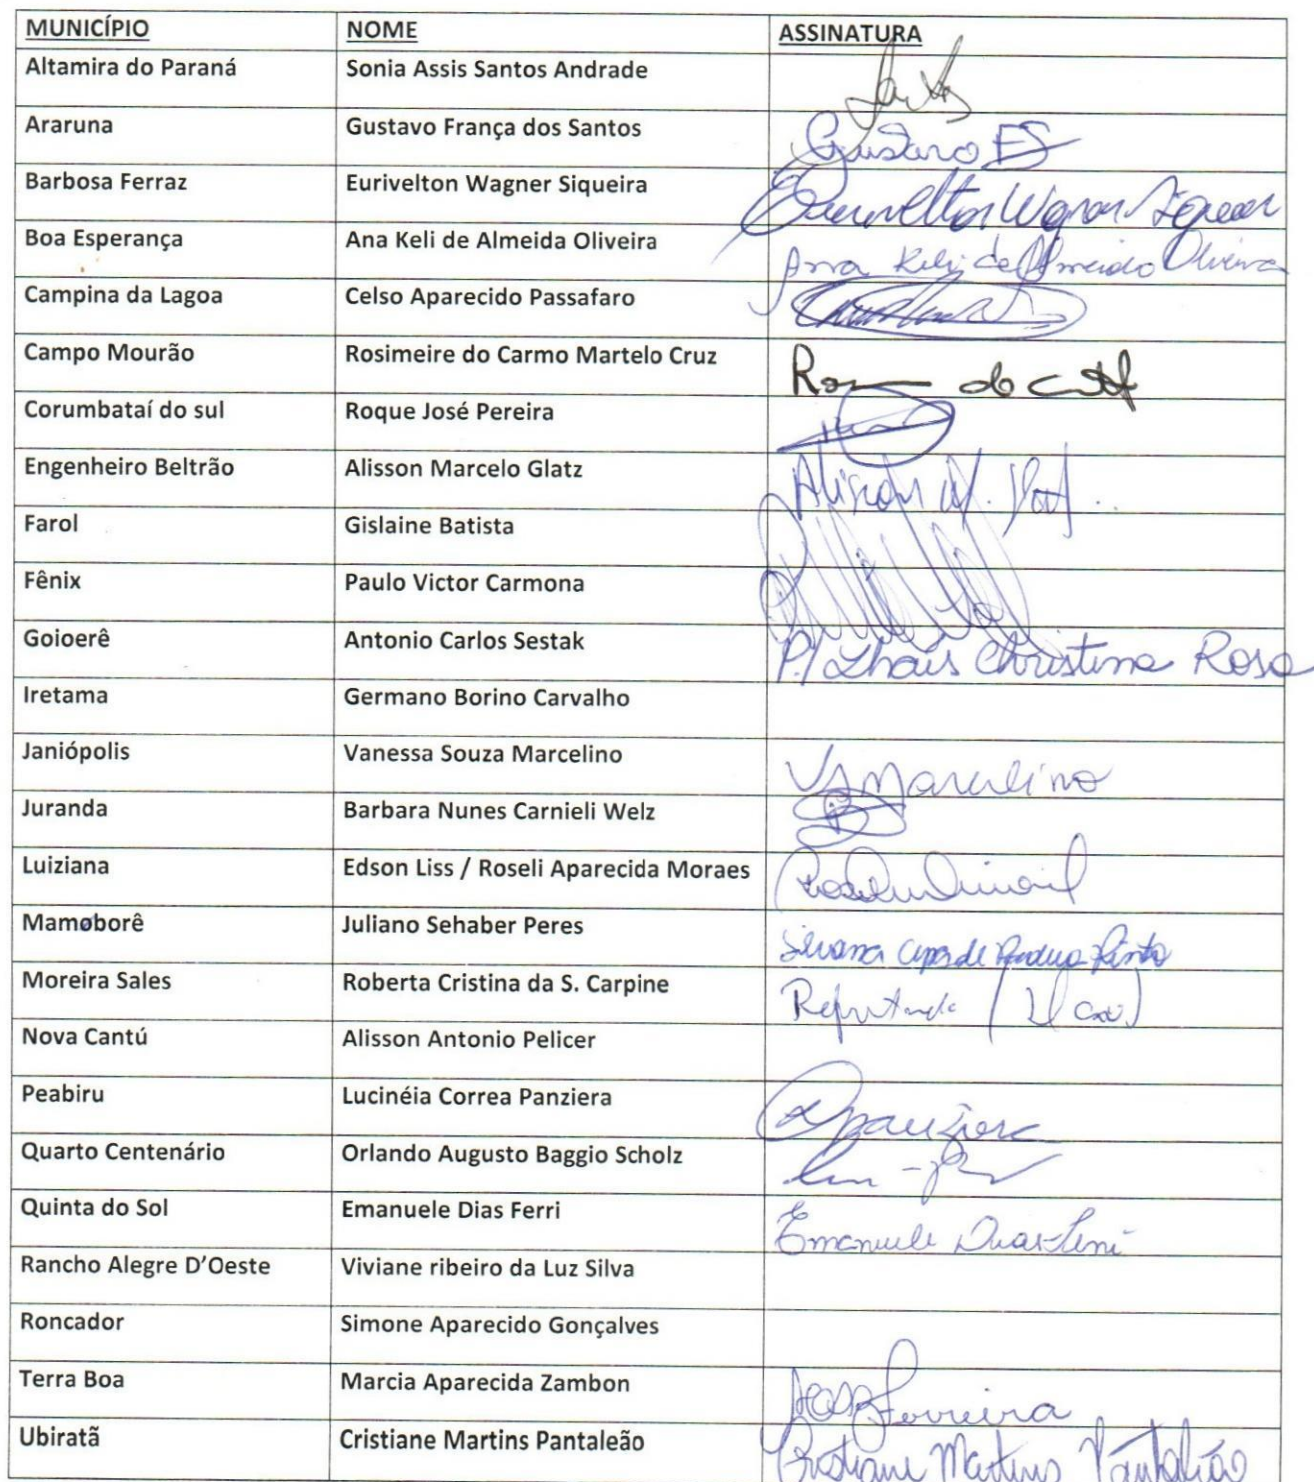 MUNICÍPIO NOME ASSINATURA
Altamira do Paraná Sonia Assis Santos Andrade
Araruna Gustavo França dos Santos Gustavo FS
Barbosa Ferraz Eurivelton Wagner Siqueira Eurivelton Wagner Siqueira
Boa Esperança Ana Keli de Almeida Oliveira Ana Keli de Almeida Oliveira
Campina da Lagoa Celso Aparecido Passafaro
Campo Mourão Rosimeire do Carmo Martelo Cruz
Corumbataí do sul Roque José Pereira
Engenheiro Beltrão Alisson Marcelo Glatz Alisson M.
Farol Gislaine Batista
Fênix Paulo Victor Carmona
Goioerê Antonio Carlos Sestak P/ Thais Christina Rosa
Iretama Germano Borino Carvalho
Janiópolis Vanessa Souza Marcelino VSMarcelino
Juranda Barbara Nunes Carnieli Welz
Luiziana Edson Liss / Roseli Aparecida Moraes
Mamøborê Juliano Sehaber Peres Silvana Pinto
Moreira Sales Roberta Cristina da S. Carpine
Nova Cantú Alisson Antonio Pelicer
Peabiru Lucinéia Correa Panziera LPanziera
Quarto Centenário Orlando Augusto Baggio Scholz
Quinta do Sol Emanuele Dias Ferri Emanuele Dias Ferri
Rancho Alegre D'Oeste Viviane ribeiro da Luz Silva
Roncador Simone Aparecido Gonçalves
Terra Boa Marcia Aparecida Zambon Ferreira
Ubiratã Cristiane Martins Pantaleão Cristiane Martins Pantaleão